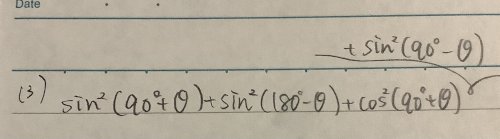 Date
+ sin²(90° - θ)
(3) sin²(90° + θ) + sin²(180° - θ) + cos²(90° + θ)